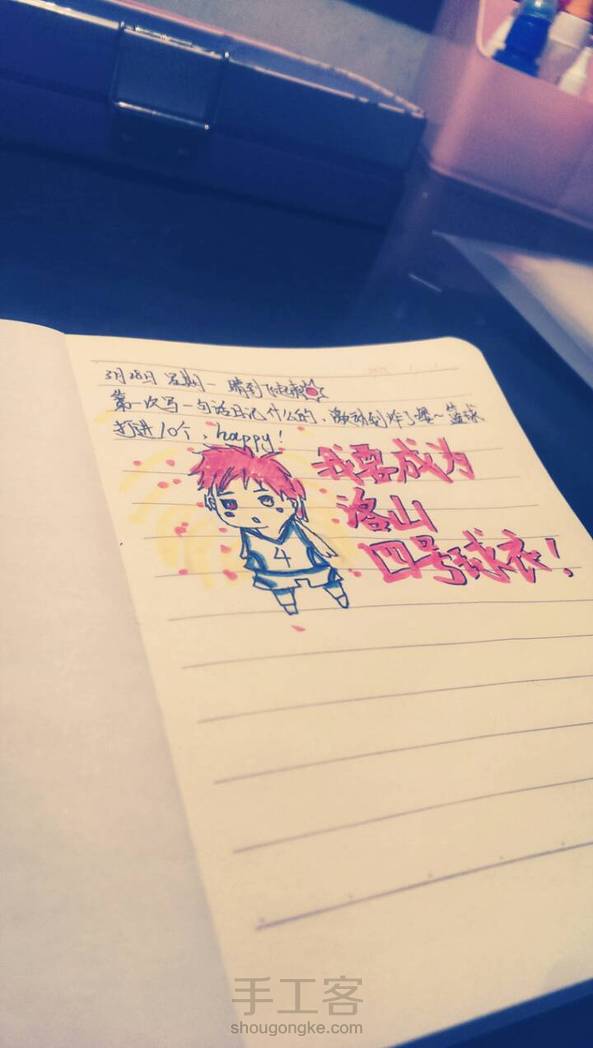 3月28日 星期一 晴到飞起来
第一次写一句话日记什么的，激动到炸了爆~篮球
打进10个，happy！
我要成为
洛山
四号球衣！
4
手工客
shougongke.com